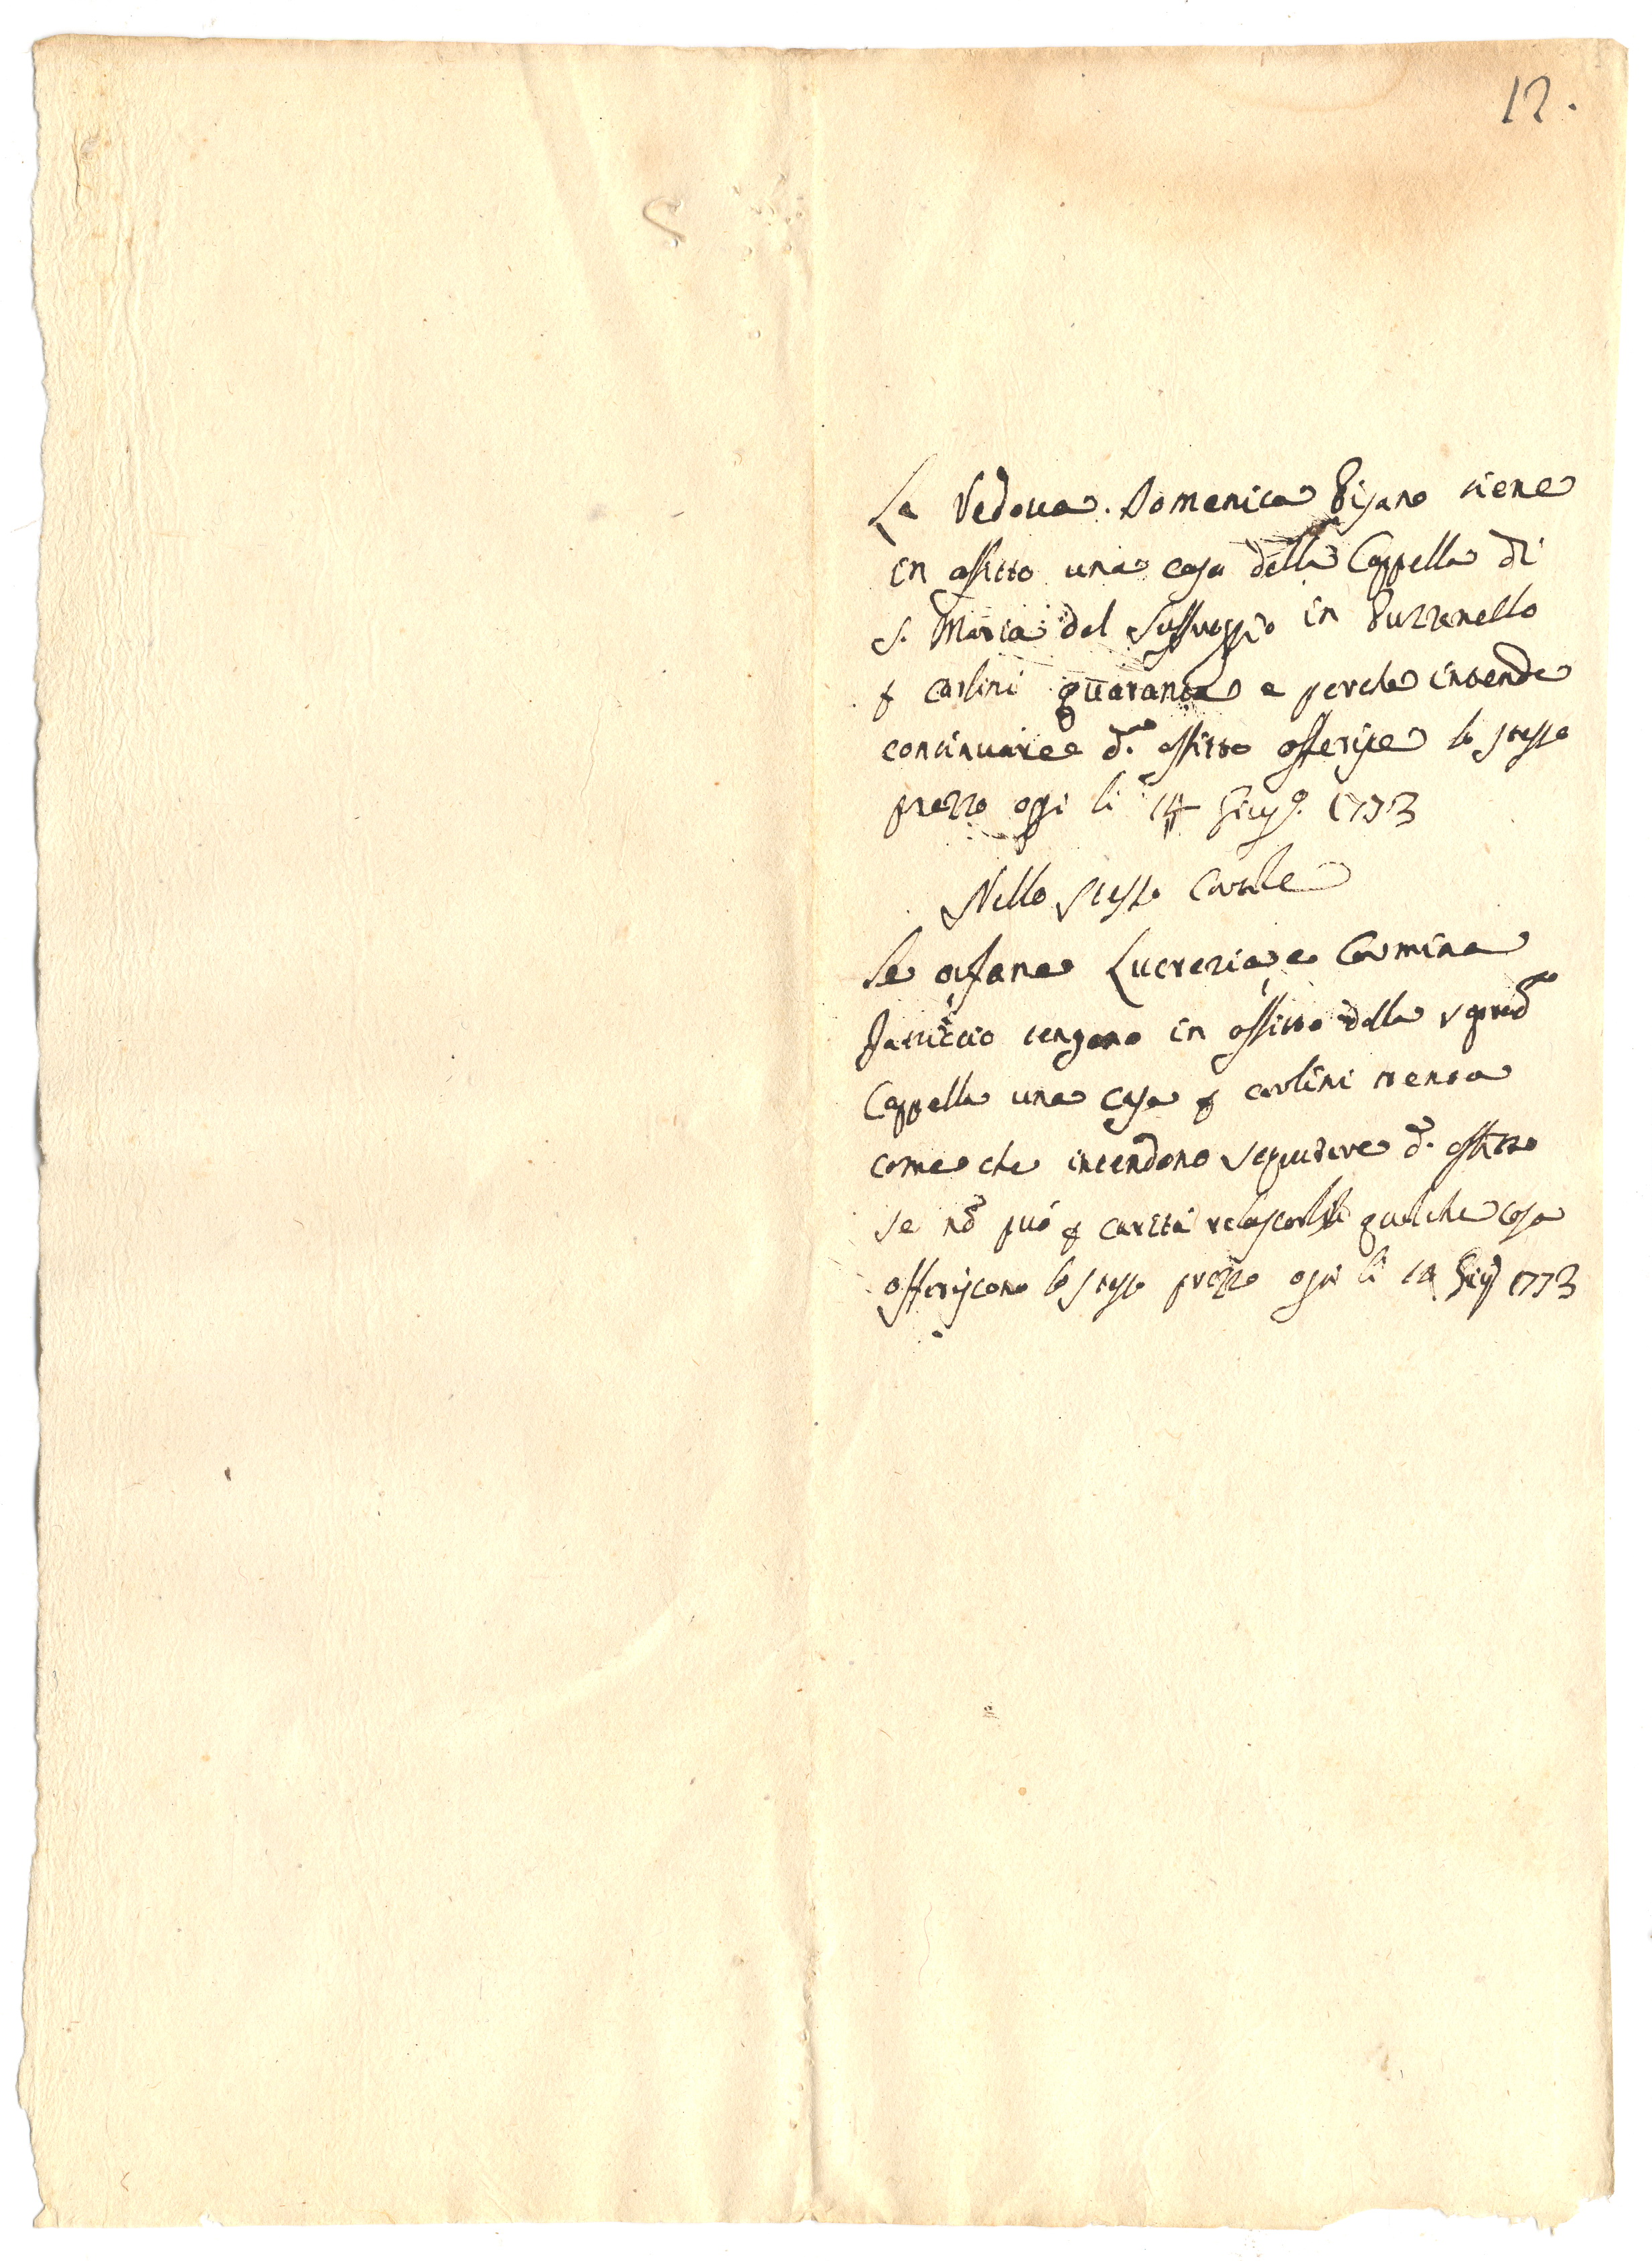 12.
La Vedova Domenica Pisano tiene
in affitto una casa della Cappella di
S. Maria del Suffraggio in Puzzanello
p carlini quaranta e perche intende
continuare d.to affitto offerisce lo stesso
prezzo oggi li 14 Giug.o 1773
Nello stesso Casale
Le orfane Lucrezia e Carmina
tengono in affitto della sopred.
Cappella una casa p carlini trenta
come che intendono seguitare d.o affitto
se nō può p carità relasciarli qualche cosa
offeriscono lo stesso prezzo oggi li 14 Giug 1773